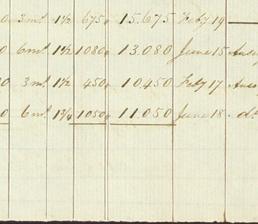 0 3 m. 1½ 675, 15.675 Feby 19
0 6 m. 1½ 1080, 13.080 June 15
0 3 m. 1½ 450, 10.450 Feby 17
0 6 m. 1¾ 1050, 11.050 June 18 - do